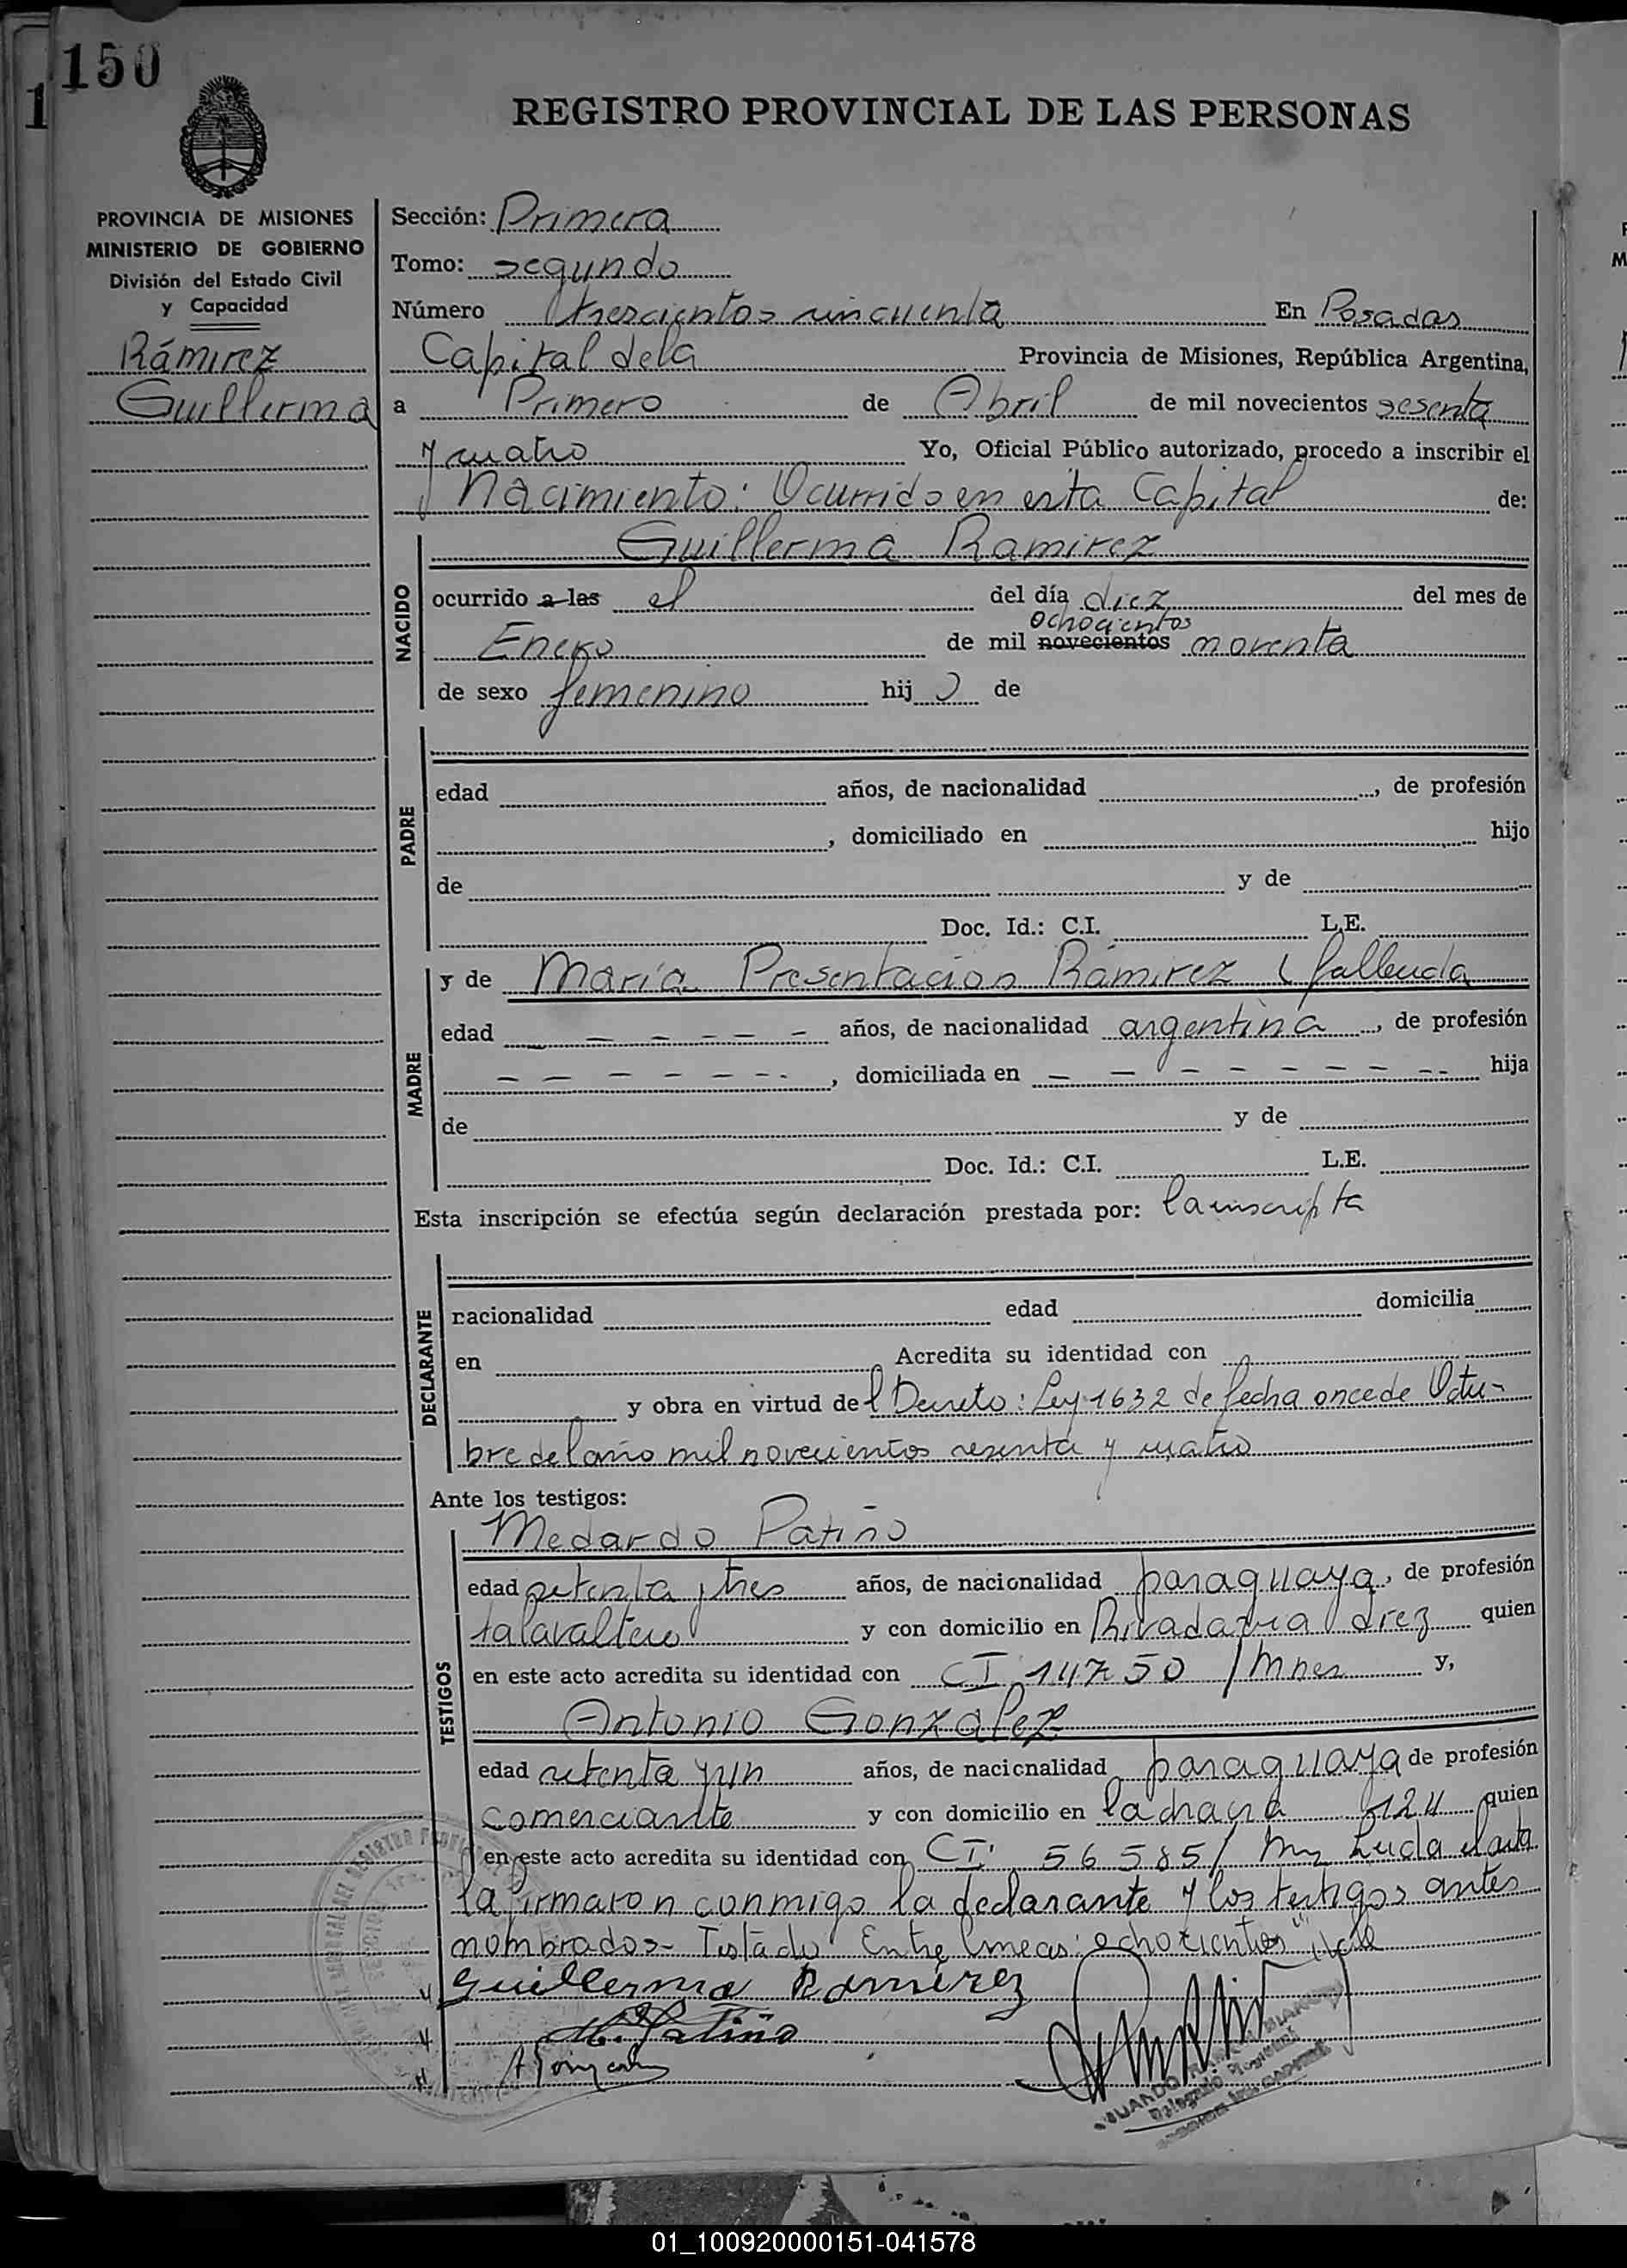 150
1
REGISTRO PROVINCIAL DE LAS PERSONAS
PROVINCIA DE MISIONES
MINISTERIO DE GOBIERNO
División del Estado Civil
y Capacidad
Rámirez
Guillerma
Sección: Primera
Tomo: segundo
Número trescientos cincuenta En Posadas
Capital dela Provincia de Misiones, República Argentina,
a Primero de Abril de mil novecientos sesenta
y cuatro Yo, Oficial Público autorizado, procedo a inscribir el
Nacimiento: Ocurrido en esta Capital de:
NACIDO
Guillerma Ramirez
ocurrido a las el del día diez del mes de
ochocientos
Enero de mil novecientos noventa
de sexo femenino hij de
PADRE
edad años, de nacionalidad , de profesión
, domiciliado en hijo
de y de
Doc. Id.: C.I. L.E.
MADRE
y de María Presentación Rámirez (fallecida
edad _ _ _ _ _ _ años, de nacionalidad argentina , de profesión
_ _ _ _ _ _ _ , domiciliada en _ _ _ _ _ _ _ _ hija
de y de
Doc. Id.: C.I. L.E.
Esta inscripción se efectúa según declaración prestada por: la inscripta
DECLARANTE
racionalidad edad domicilia
en Acredita su identidad con
y obra en virtud del Decreto: Ley 1632 de fecha once de Octu-
bre del año mil novecientos sesenta y cuatro
Ante los testigos:
TESTIGOS
Medardo Patiño
edad setenta y tres años, de nacionalidad paraguaya, de profesión
talavaltero y con domicilio en Rivadavia diez quien
en este acto acredita su identidad con CI 14750 /Mnes y,
Antonio Gonzalez
edad setenta y un años, de nacicnalidad paraguaya de profesión
comerciante y con domicilio en la chacra 124 quien
en este acto acredita su identidad con CI 56585/ Leida el acta
la firmaron conmigo la declarante y los testigos antes
nombrados- Testado Entre lineas: ochocientos vale
Guillerma Ramirez
M. Patiño
A Gonzalez
01_100920000151-041578